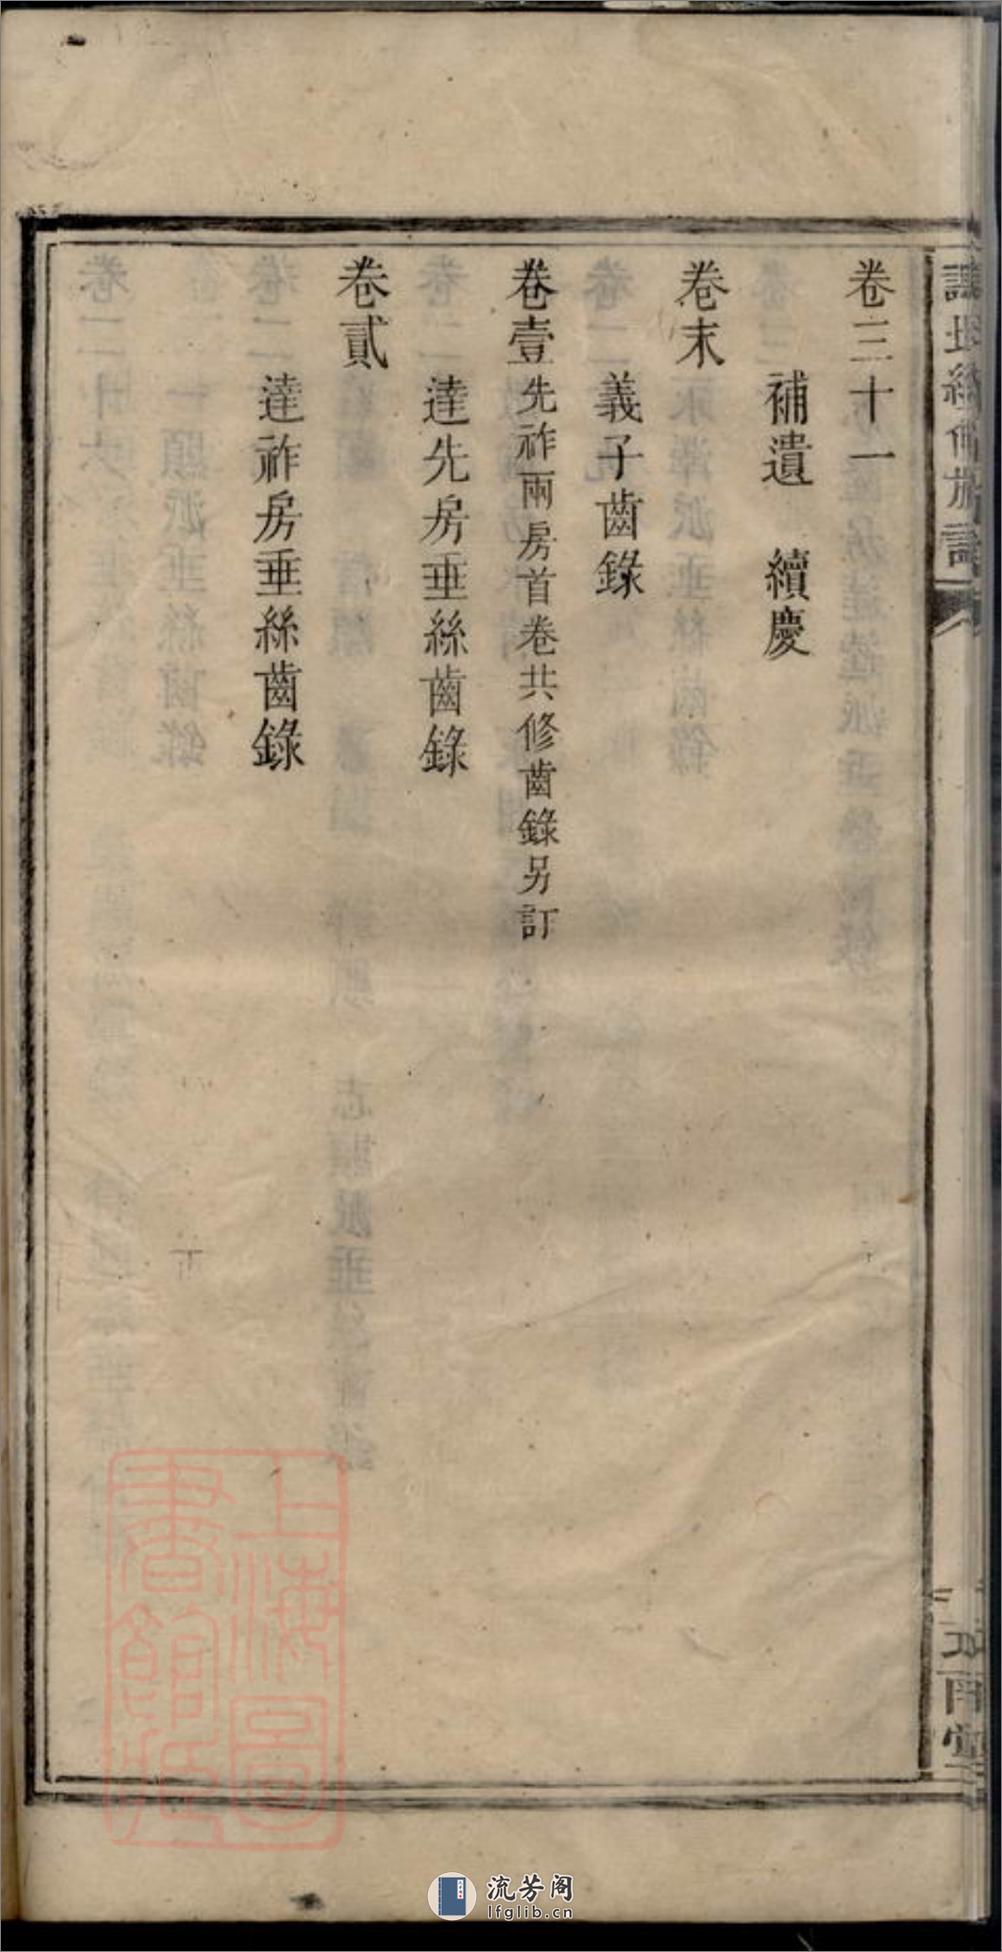 卷三十一
補遺 續慶
卷末
義子齒錄
卷壹先祚兩房首卷共修齒錄另訂
達先房垂絲齒錄
卷貳
達祚房垂絲齒錄
上海圖
書館藏
流芳阁
lfglib.cn